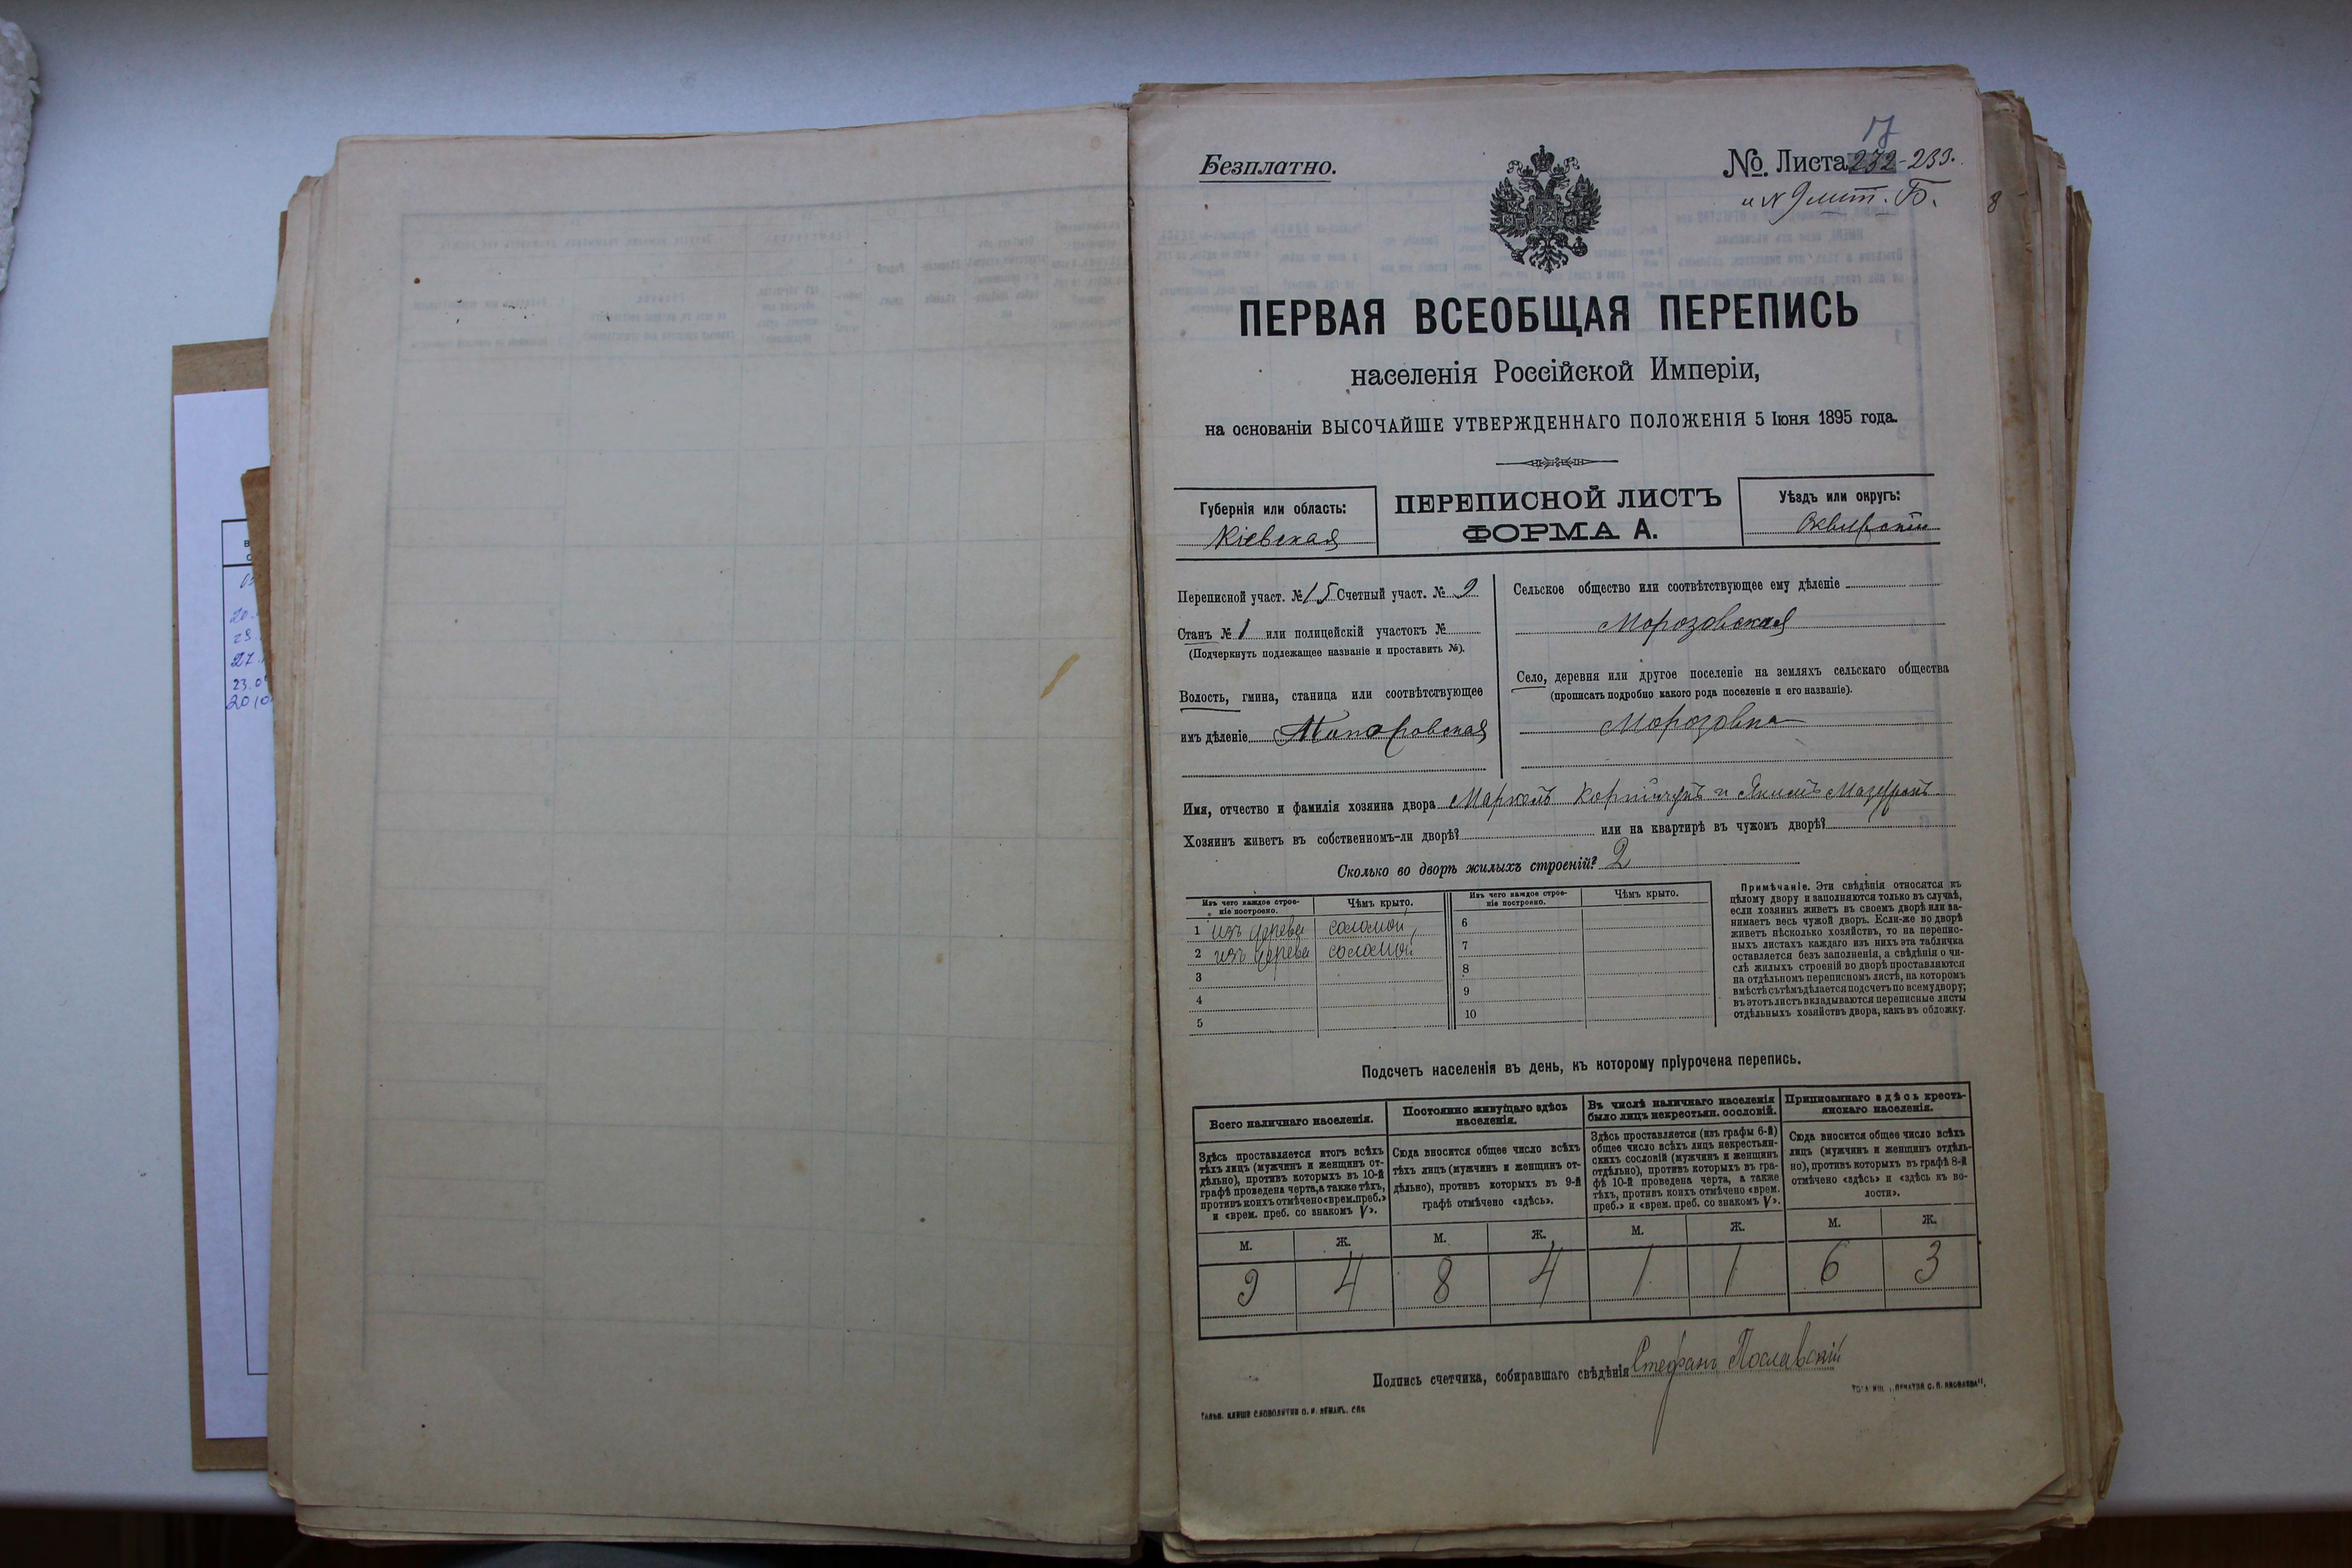 17
Безплатно.
№. Листа 232-233.
и № 9 лит. Б.
8
ПЕРВАЯ ВСЕОБЩАЯ ПЕРЕПИСЬ
населенія Россійской Имперіи,
на основаніи ВЫСОЧАЙШЕ УТВЕРЖДЕННАГО ПОЛОЖЕНІЯ 5 Іюня 1895 года.
Губернія или область:
Кіевская
ПЕРЕПИСНОЙ ЛИСТЪ
ФОРМА А.
Уѣздъ или округъ:
Сквирскій
Переписной участ. № 15 Счетный участ. № 9
Станъ № 1 или полицейскій участокъ №
(Подчеркнуть подлежащее названіе и проставить №).
Волость, гмина, станица или соотвѣтствующее
имъ дѣленіе
Сельское общество или соотвѣтствующее ему дѣленіе
Морозовская
Село, деревня или другое поселеніе на земляхъ сельскаго общества
(прописать подробно какого рода поселеніе и его названіе).
Морозовка
Имя, отчество и фамилія хозяина двора Маркелъ Корнійчукъ и Якимъ
Хозяинъ живетъ въ собственномъ-ли дворѣ? или на квартирѣ въ чужомъ дворѣ?
Сколько во дворѣ жилыхъ строеній? 2
Изъ чего каждое строе-
ніе построено.
Чѣмъ крыто.
1 изъ дерева соломой,
2 изъ дерева соломой
3
4
5
Изъ чего каждое строе-
ніе построено.
Чѣмъ крыто.
6
7
8
9
10
Примѣчаніе. Эти свѣдѣнія относятся къ
цѣлому двору и заполняются только въ случаѣ,
если хозяинъ живетъ въ своемъ дворѣ или за-
нимаетъ весь чужой дворъ. Если-же во дворѣ
живетъ нѣсколько хозяйствъ, то на перепис-
ныхъ листахъ каждаго изъ нихъ эта табличка
оставляется безъ заполненія, а свѣдѣнія о чи-
слѣ жилыхъ строеній во дворѣ проставляются
на отдѣльномъ переписномъ листѣ, на которомъ
вмѣстѣ съ тѣмъ дѣлается подсчетъ по всему двору;
въ этотъ листъ вкладываются переписные листы
отдѣльныхъ хозяйствъ двора, какъ въ обложку.
Подсчетъ населенія въ день, къ которому пріурочена перепись.
Всего наличнаго населенія.
Здѣсь проставляется итогъ всѣхъ
тѣхъ лицъ (мужчинъ и женщинъ от-
дѣльно), противъ которыхъ въ 10-й
графѣ проведена черта, а также тѣхъ,
противъ коихъ отмѣчено «врем. преб.»
и «врем. преб. со знакомъ V».
Постоянно живущаго здѣсь
населенія.
Сюда вносится общее число всѣхъ
тѣхъ лицъ (мужчинъ и женщинъ от-
дѣльно), противъ которыхъ въ 9-й
графѣ отмѣчено «здѣсь».
Въ числѣ наличнаго населенія
было лицъ некрестьян. сословій.
Здѣсь проставляется (изъ графы 6-й)
общее число всѣхъ лицъ некрестьян-
скихъ сословій (мужчинъ и женщинъ
отдѣльно), противъ которыхъ въ гра-
фѣ 10-й проведена черта, а также
тѣхъ, противъ коихъ отмѣчено «врем.
преб.» и «врем. преб. со знакомъ V».
Приписаннаго здѣсь кресть-
янскаго населенія.
Сюда вносится общее число всѣхъ
лицъ (мужчинъ и женщинъ отдѣль-
но), противъ которыхъ въ графѣ 8-й
отмѣчено «здѣсь» и «здѣсь къ во-
лости».
М. Ж. М. Ж. М. Ж. М. Ж.
9 4 8 4 1 1 6 3
Подпись счетчика, собиравшаго свѣдѣнія Стефанъ Пославскій